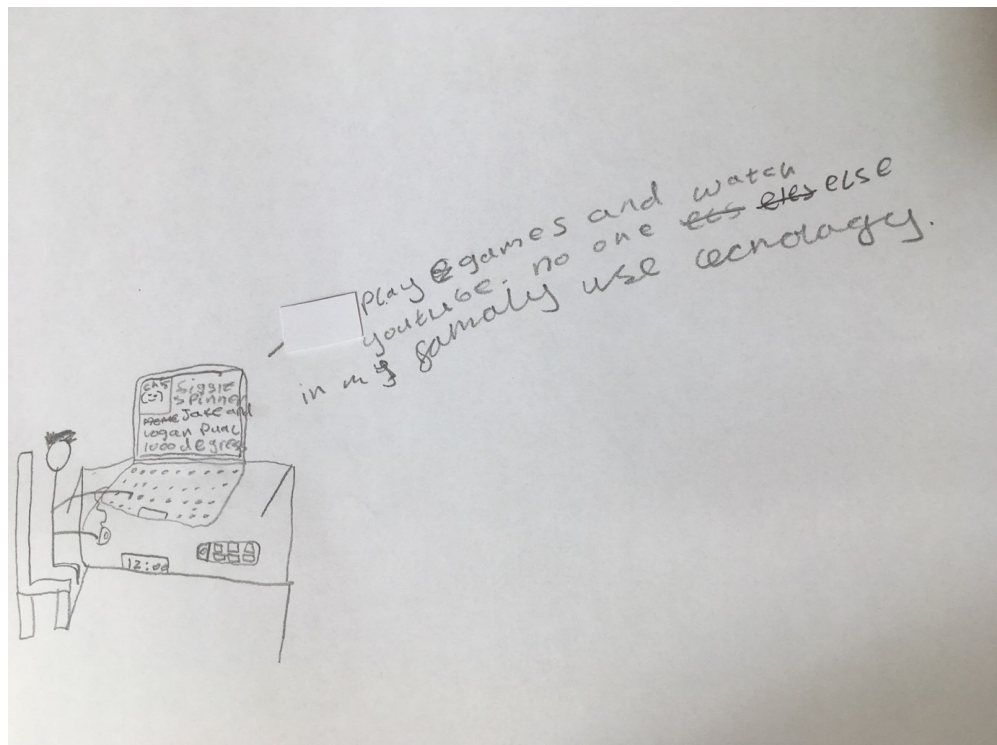 play games and watch
youtube. no one else
in my famaly use tecnolagy.
spinner
Jake and
Logan Paul
1000 degrees
12:00